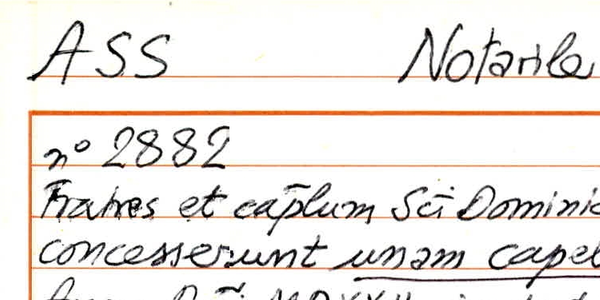 ASS Notarile
n° 2882
Fratres et cap̄lum Sc̄i Dominic
concesserunt unam capel